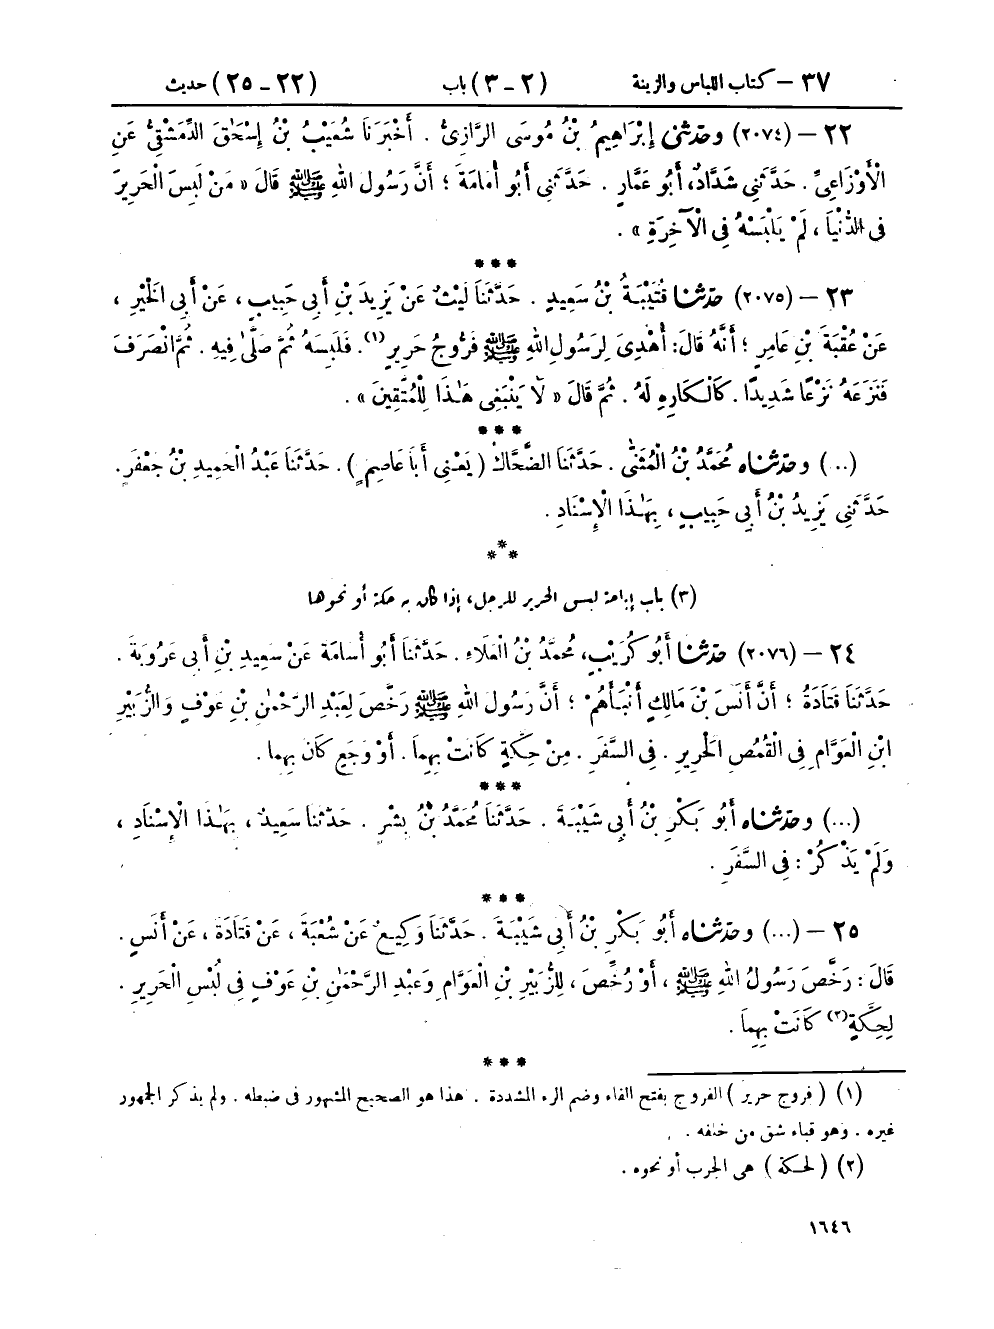 ٣٧ – كتاب اللباس والزينة (٢ - ٣) باب (٢٢ - ٢٥) حديث
٢٢ – (٢٠٧٤) وحَدَّثَنِي إِبْرَاهِيمُ بْنُ مُوسَى الرَّازِيُّ . أَخْبَرَنَا شُعَيْبُ بْنُ إِسْحَٰقَ الدِّمَشْقِيُّ عَنِ
الْأَوْزَاعِيِّ . حَدَّثَنِي شَدَّادٌ، أَبُو عَمَّارٍ . حَدَّثَنِي أَبُو أُمَامَةَ ؛ أَنَّ رَسُولَ اللهِ ﷺ قَالَ « مَنْ لَبِسَ الْحَرِيرَ
فِي الدُّنْيَا ، لَمْ يَلْبَسْهُ فِي الْآخِرَةِ » .
***
٢٣ – (٢٠٧٥) حَدَّثَنَا قُتَيْبَةُ بْنُ سَعِيدٍ . حَدَّثَنَا لَيْثٌ عَنْ يَزِيدَ بْنِ أَبِي حَبِيبٍ ، عَنْ أَبِي الْخَيْرِ ،
عَنْ عُقْبَةَ بْنِ عَامِرٍ ؛ أَنَّهُ قَالَ : أُهْدِيَ لِرَسُولِ اللهِ ﷺ فَرُّوجُ حَرِيرٍ(١). فَلَبِسَهُ ثُمَّ صَلَّىٰ فِيهِ . ثُمَّ انْصَرَفَ
فَنَزَعَهُ نَزْعًا شَدِيدًا . كَالْكَارِهِ لَهُ . ثُمَّ قَالَ « لَا يَنْبَغِي هَٰذَا لِلْمُتَّقِينَ » .
***
(..) وحَدَّثَنَاه مُحَمَّدُ بْنُ الْمُثَنَّىٰ . حَدَّثَنَا الضَّحَّاكُ ( يَعْنِي أَبَا عَاصِمٍ ) . حَدَّثَنَا عَبْدُ الْحَمِيدِ بْنُ جَعْفَرٍ.
حَدَّثَنِي يَزِيدُ بْنُ أَبِي حَبِيبٍ ، بِهَٰذَا الْإِسْنَادِ .
***
(٣) باب إباحة لبس الحرير للرجل، إذا كان به حكة أو نحوها
٢٤ – (٢٠٧٦) حَدَّثَنَا أَبُو كُرَيْبٍ، مُحَمَّدُ بْنُ الْعَلَاءِ . حَدَّثَنَا أَبُو أُسَامَةَ عَنْ سَعِيدِ بْنِ أَبِي عَرُوبَةَ .
حَدَّثَنَا قَتَادَةُ ؛ أَنَّ أَنَسَ بْنَ مَالِكٍ أَنْبَأَهُمْ ؛ أَنَّ رَسُولَ اللهِ ﷺ رَخَّصَ لِعَبْدِ الرَّحْمَٰنِ بْنِ عَوْفٍ وَالزُّبَيْرِ
ابْنِ الْعَوَّامِ فِي الْقُمُصِ الْحَرِيرِ . فِي السَّفَرِ . مِنْ حِكَّةٍ كَانَتْ بِهِمَا . أَوْ وَجَعٍ كَانَ بِهِمَا .
***
(...) وحَدَّثَنَاه أَبُو بَكْرِ بْنُ أَبِي شَيْبَةَ . حَدَّثَنَا مُحَمَّدُ بْنُ بِشْرٍ . حَدَّثَنَا سَعِيدٌ ، بِهَٰذَا الْإِسْنَادِ ،
وَلَمْ يَذْكُرْ : فِي السَّفَرِ .
***
٢٥ – (...) وحَدَّثَنَاه أَبُو بَكْرِ بْنُ أَبِي شَيْبَةَ . حَدَّثَنَا وَكِيعٌ عَنْ شُعْبَةَ ، عَنْ قَتَادَةَ ، عَنْ أَنَسٍ .
قَالَ : رَخَّصَ رَسُولُ اللهِ ﷺ ، أَوْ رُخِّصَ ، لِلزُّبَيْرِ بْنِ الْعَوَّامِ وَعَبْدِ الرَّحْمَٰنِ بْنِ عَوْفٍ فِي لُبْسِ الْحَرِيرِ .
لِحِكَّةٍ(٢) كَانَتْ بِهِمَا .
***
(١) ( فروج حرير ) الفروج بفتح الفاء وضم الراء المشددة . هذا هو الصحيح المشهور فى ضبطه . ولم يذكر الجمهور
غيره . وهو قباء شق من خلفه .
(٢) ( لحكة ) هى الجرب أو نحوه .
١٦٤٦